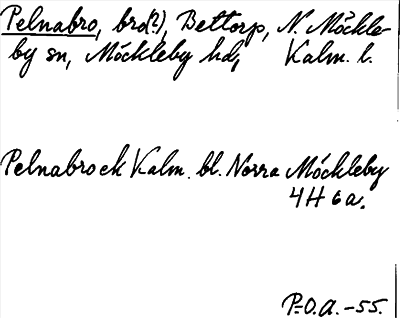 Pelnabro, bro(?), Bettorp, N. Möckle-
by sn, Möckleby hd, Kalm. l.
Pelnabro ek Kalm. bl. Norra Möckleby
4H 6a.
P.O.A. -55.